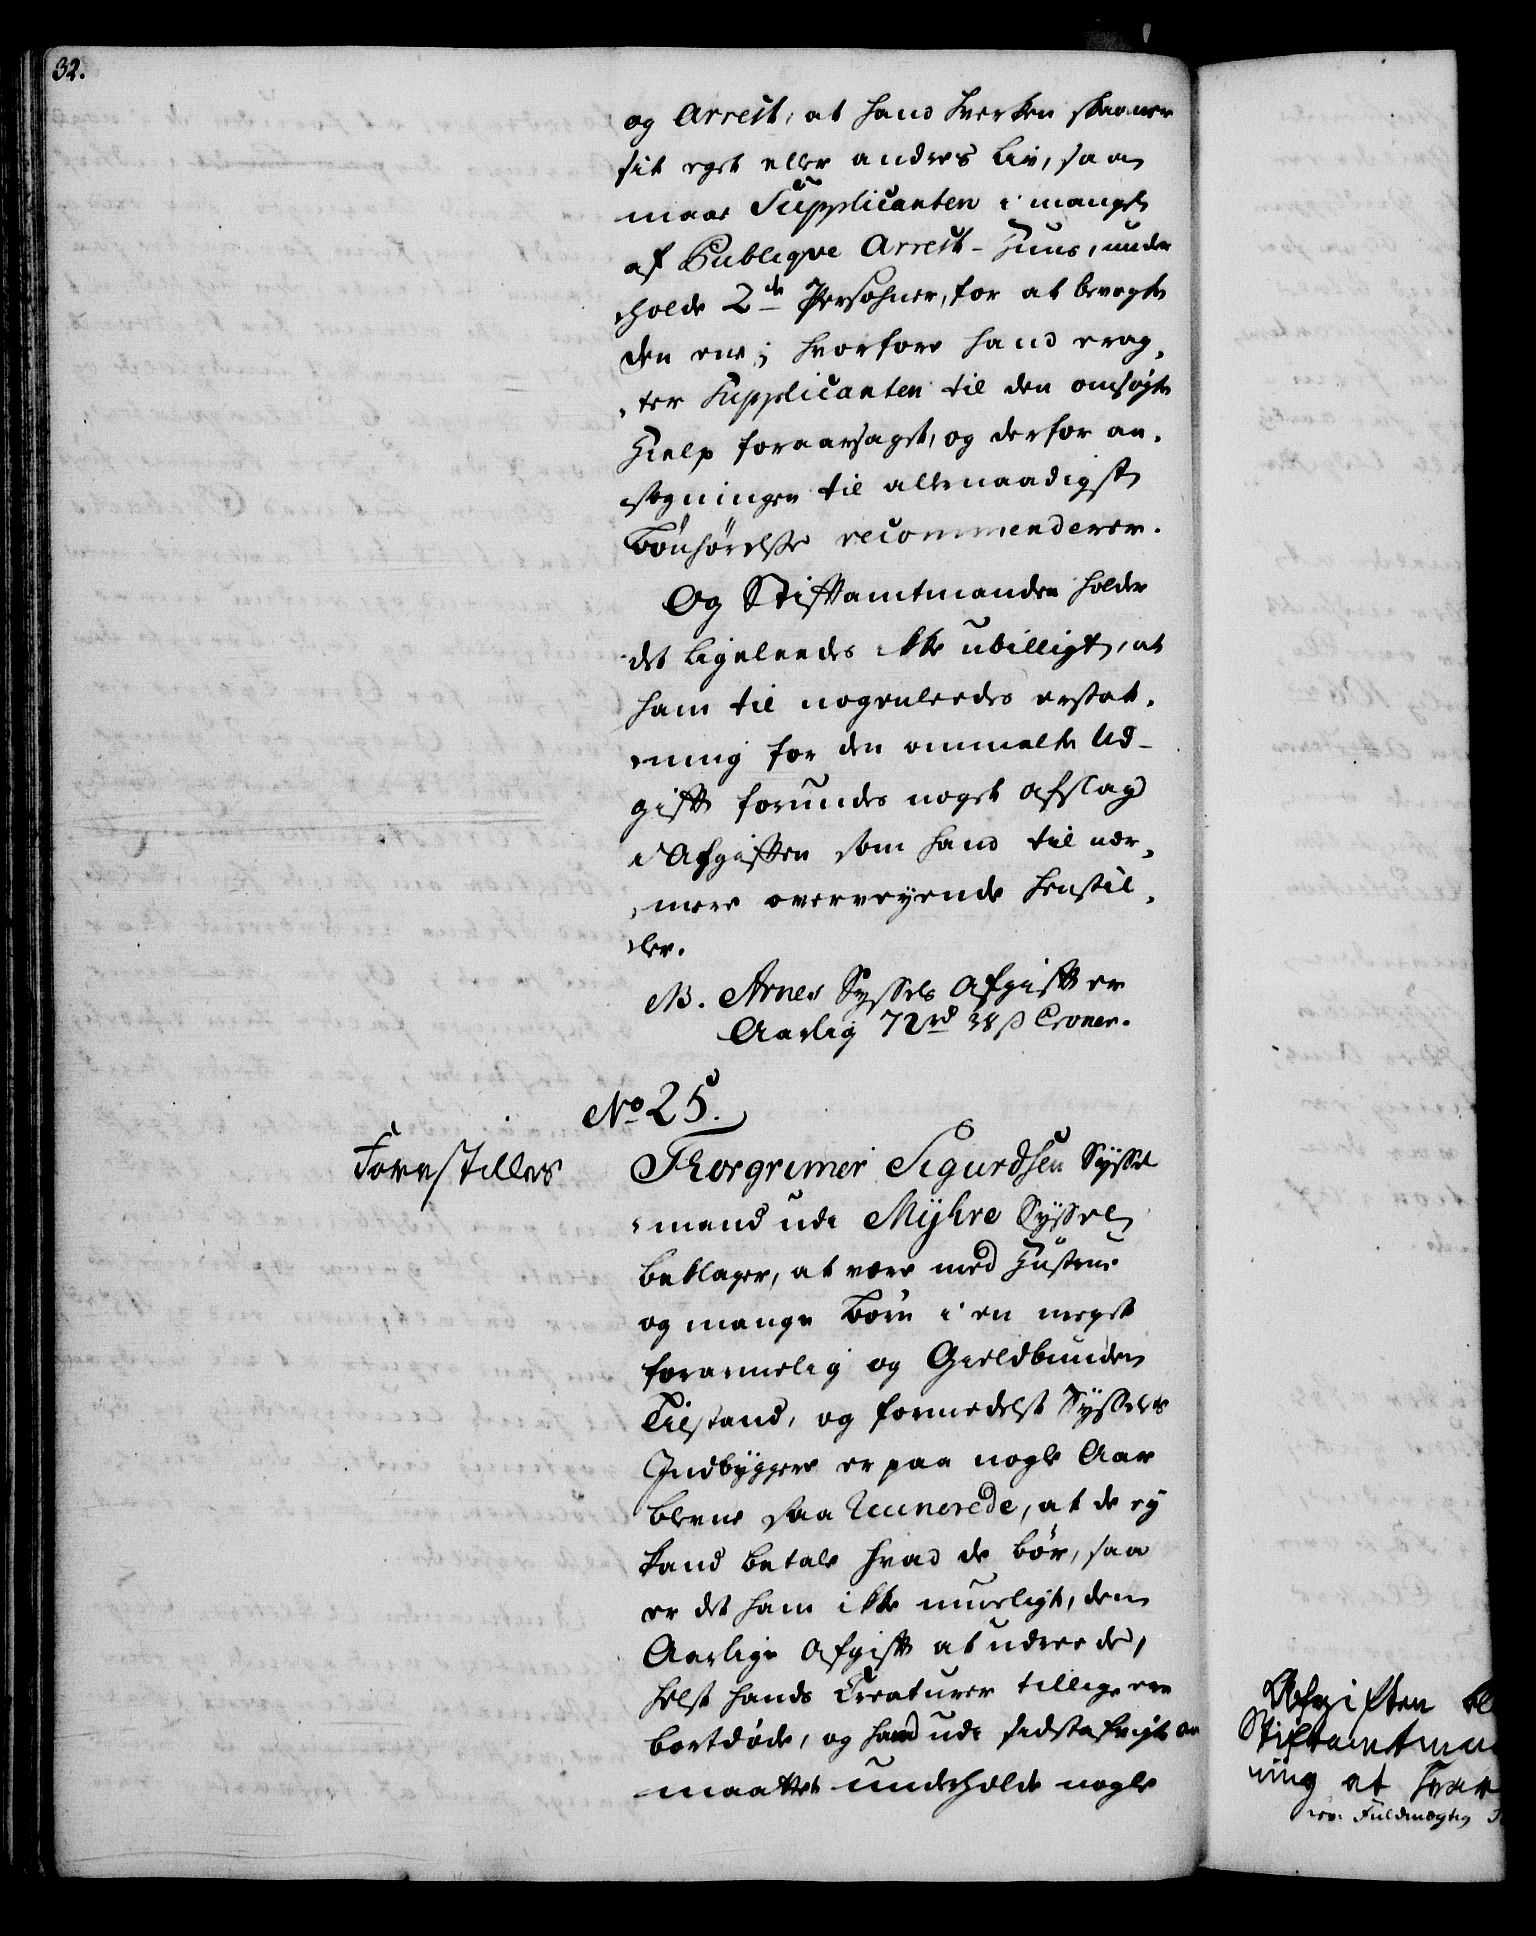 32.
og Arrest, at hand hverken skaaner
sit eget eller andres Liv, saa
maae Supplicanten i mangel
af Publiqve Arrest-Huus, under
holde 2de Persohner, for at bevogte
den ene; hvorfore hand erag,
,ter Supplicanten til den omsøgte
Hielp foraarsaget, og derfor an,
søgningen til allernaadigste
Bønhørelse recommenderer.
Og Stiftamtmanden holder
det ligeleedes ikke ubilligt, at
ham til nogenleedes erstat,
,ning for den ommelte Ud-
gift forundes noget afslag
i Afgiften som hand til nær,
,mere overveyende henstil,
ler.
NB. Arnes Syssels Afgift er
Aarlig 72rd 38 β Croner.
No 25.
Forestilles
Thorgrimer Sigurdsen Syssel
,mand udi Myhre Syssel
beklager, at være med Hustrue
og mange Børn i en meget
forarmelig og Gieldbunden
Tilstand, og formedelst Syssels
Indbyggere er paa nogle Aar
blevne saa ruinerede, at de ey
kand betale hvad de bør, saa
er det ham ikke mueligt, den
Aarlige Afgift at udreede,
helst hands Creaturer tillige ere
bortdøde, og hand udi sidstafvigte Aar
maattet underholde nogle
Afgiften
Stiftamtman
ning at
Fuldmægtig